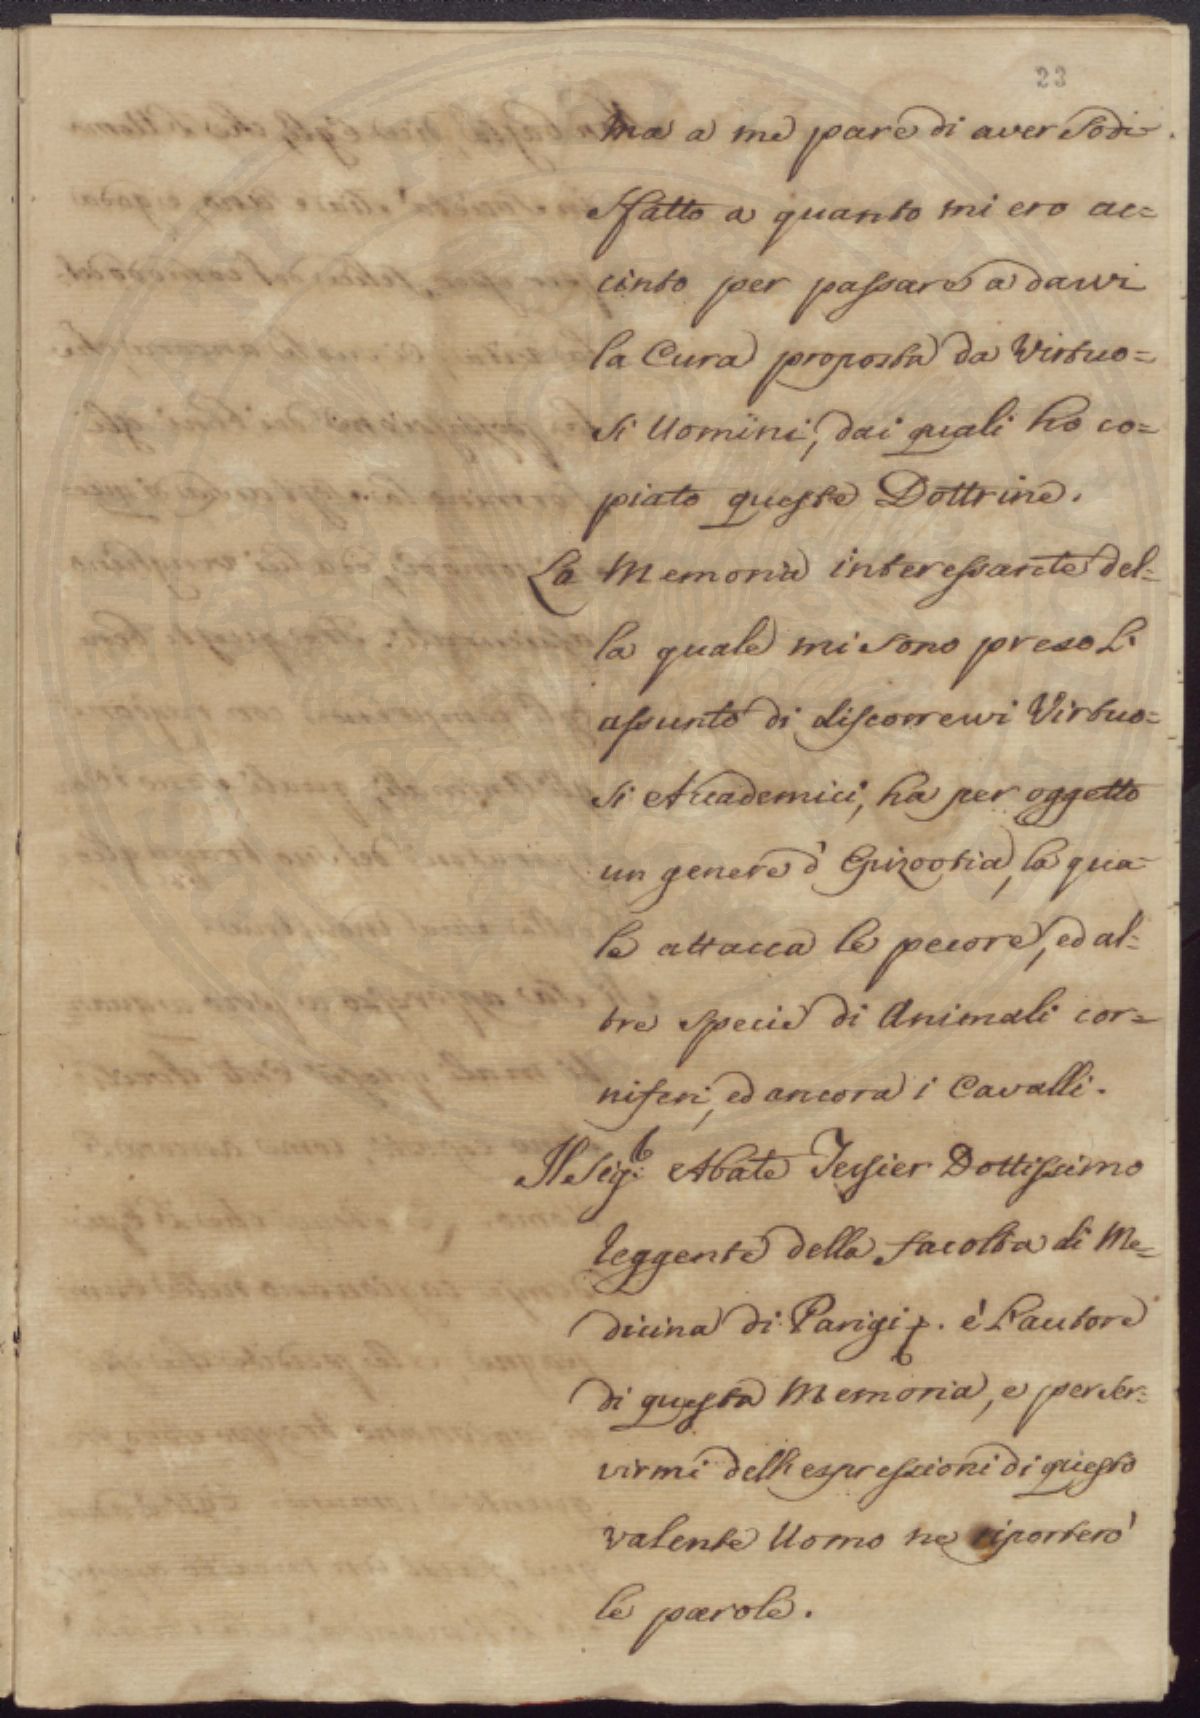 23
ma a me pare di aver Sodi-
sfatto a quanto mi ero ac=
cinto per passare a darvi
la Cura proposta da Virtuo=
si Uomini, dai quali ho co=
piato queste Dottrine.
La Memoria interessante del=
la quale mi sono preso L'
assunto di discorrervi Virtuo=
si Accademici, ha per oggetto
un genere d' Epizootia, la qua=
le attacca le pecore, ed al=
tre specie di Animali cor=
niferi, ed ancora i Cavalli.
Il Sig.r Abate Tessier Dottissimo
leggente della facolta di Me=
dicina di Parigi é L'autore
di questa Memoria, e per ser=
virmi dell'espressioni di questo
valente Uomo ne riporteró
le parole.